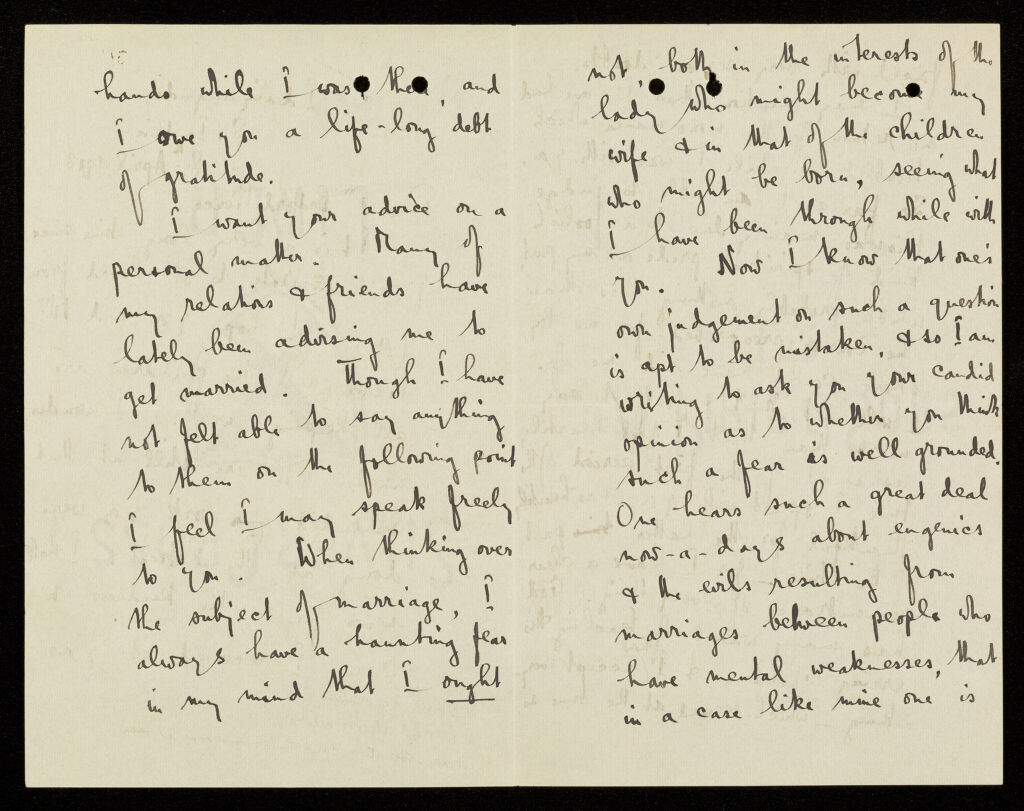 hands while I was there, and
I owe you a life-long debt
of gratitude.
I want your advice on a
personal matter. Many of
my relations & friends have
lately been advising me to
get married. Though I have
not felt able to say anything
to them on the following point
I feel I may speak freely
to you. When thinking over
the subject of marriage, I
always have a haunting fear
in my mind that I ought
not, both in the interests of the
lady who might become my
wife & in that of the children
who might be born, seeing what
I have been through while with
you. Now I know that one's
own judgement on such a question
is apt to be mistaken, & so I am
writing to ask you your candid
opinion as to whether you think
such a fear is well grounded.
One hears such a great deal
now-a-days about eugenics
& the evils resulting from
marriages between people who
have mental weaknesses, that
in a case like mine one is